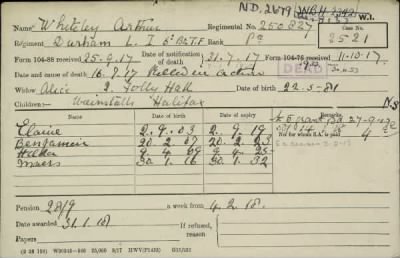 N.D. 2679
Name Whiteley Arthur Regimental No. 250827
W.I.
Regiment Durham L. I 6th Bt. T.F Rank Pte
2521
Form 104-88 received 25.9.17 Date of notification of death 21.7.17 Form 104-76 received 11.10.17
DEAD
Date and cause of death 16.4.17 Killed in action
Widow Alice 2. Folly Hall Date of birth 22.5.81
Children:— Wainstalls Halifax
N.S
Date of birth Date of expiry Remarks
Elaine 2.9.03 2.9.19
Benjamin 20.2.07 20.2.23
Hilda 9.4.09 9.4.25
30.1.16 30.1.32
Not for whom S.A. is paid
Pension 28/9 a week from 4.2.18.
Date awarded 31.1.18 If refused, reason
Papers